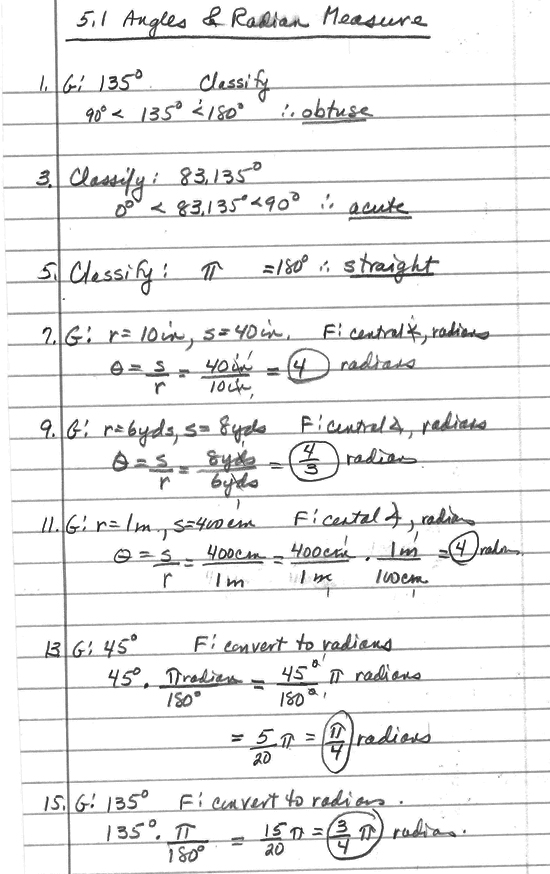 5.1 Angles & Radian Measure
1. G: 135° Classify
90° < 135° < 180° ∴ obtuse
3. Classify: 83.135°
0° < 83.135° < 90° ∴ acute
5. Classify: π = 180° ∴ straight
7. G: r = 10 in, s = 40 in. F: central ∡, radians
θ = s/r = 40 in/10 in = 4 radians
9. G: r = 6 yds, s = 8 yds F: central ∡, radians
θ = s/r = 8 yds/6 yds = 4/3 radians
11. G: r = 1m, s = 400 cm F: cental ∡, radians
θ = s/r = 400cm/1m = 400cm/1m · 1m/100cm = 4 radians
13 G: 45° F: convert to radians
45° · π radians/180° = 45°/180° π radians
= 5/20 π = π/4 radians
15. G: 135° F: convert to radians.
135° · π/180° = 15/20 π = 3/4 π radians.